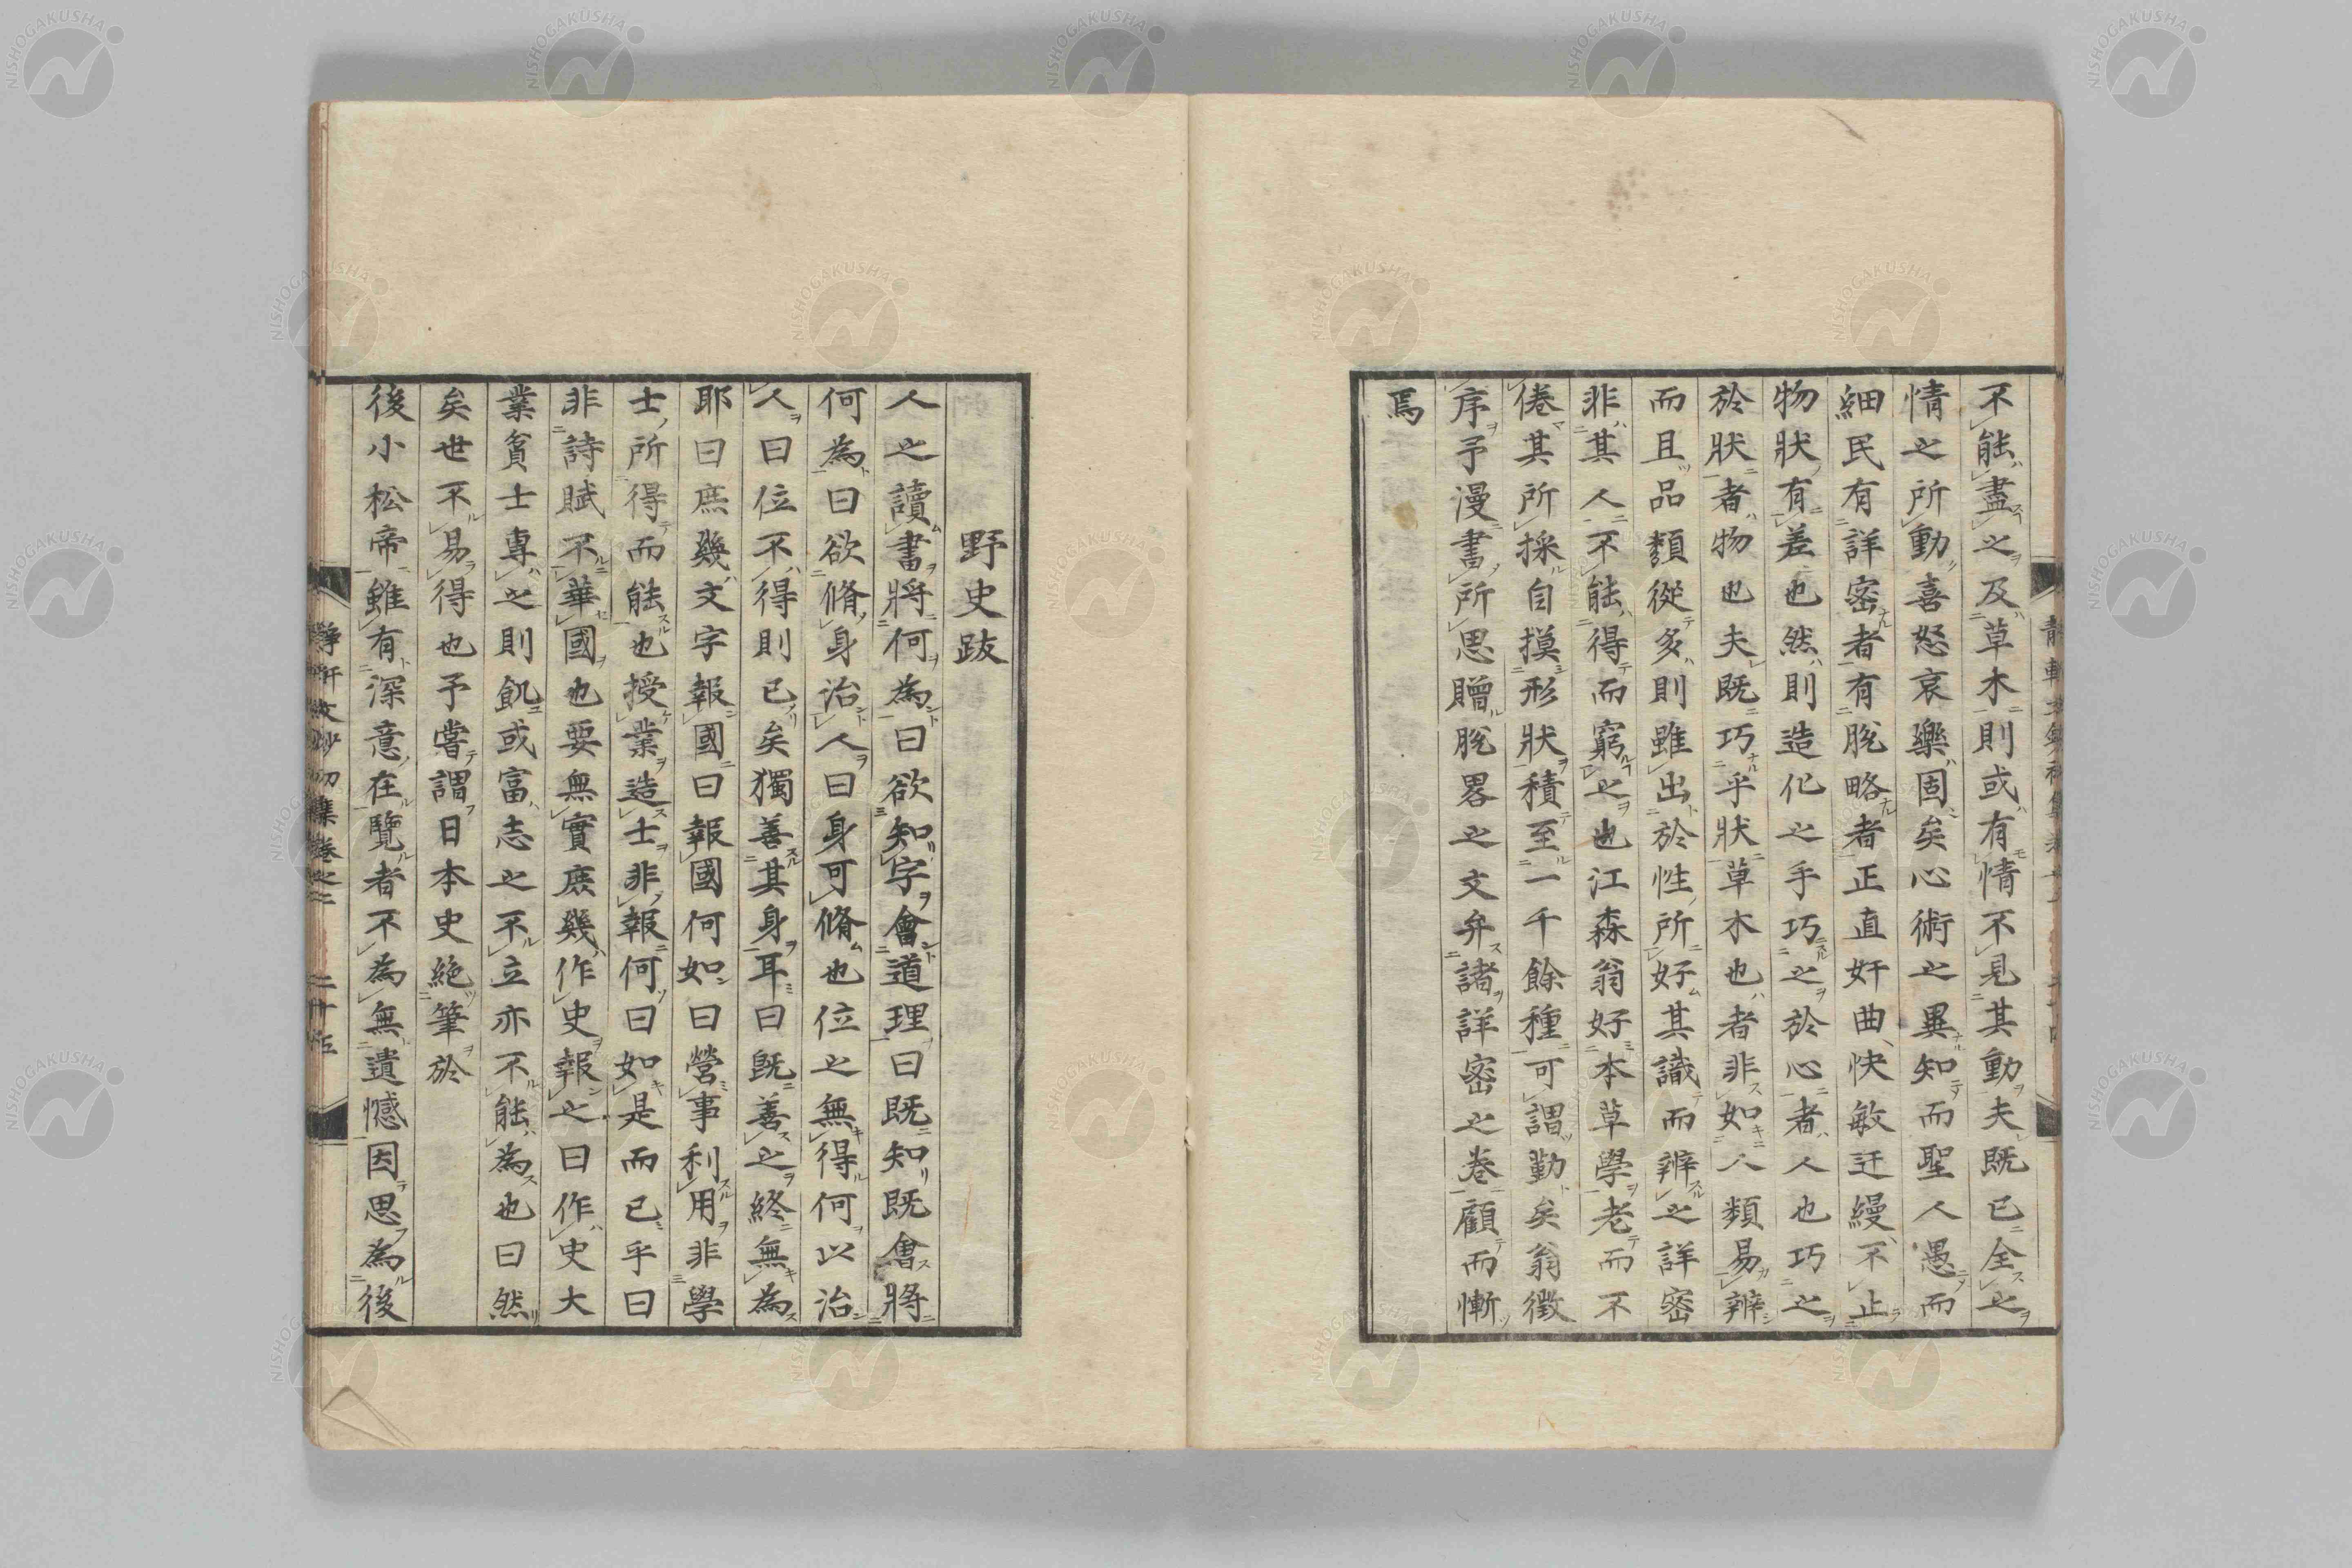 不能盡之及草木則或有情不見其動夫既已全之
情之所動喜怒哀樂固矣心術之異知而聖人愚而
細民有詳密者有脫略者正直奸曲快敏迂縵不止
物狀有差也然則造化之手巧之於心者人也巧之
於狀者物也夫既巧乎狀草木也者非如人類易辨
而且品類從多則雖出於性所好其識而辨之詳密
非其人不能得而窮之也江森翁好本草學老而不
倦其所採自摸形狀積至一千餘種可謂勤矣翁徵
序予漫書所思贈脫畧之文弁諸詳密之卷顧而慚
焉
野史跋
人之讀書將何為曰欲知字會道理曰既知既會將
何為曰欲脩身治人曰身可脩也位之無得何以治
人曰位不得則已矣獨善其身耳曰既善之終無為
耶曰庶幾文字報國曰報國何如曰營事利用非學
士所得而能也授業造士非報何曰如是而已乎曰
非詩賦不華國也要無實庶幾作史報之曰作史大
業貧士專之則飢或富志之不立亦不能為也曰然
矣世不易得也予嘗謂日本史絶筆於
後小松帝雖有深意在覽者不為無遺憾因思為後
靜軒文鈔初集卷之二 二十五
NISHOGAKUSHA